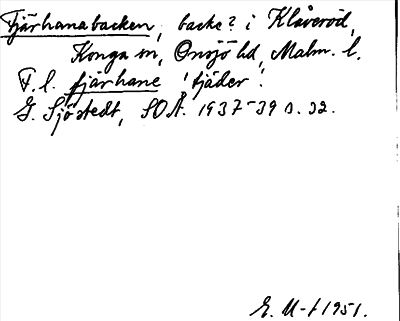 Fjärhanabacken, backe? i Klåveröd,
Konga sn, Onsjö hd, Malm. l.
F. l. fjärhane 'tjäder'.
G. Sjöstedt, SOÅ. 1937-39 s. 32.
E. M-t 1951.